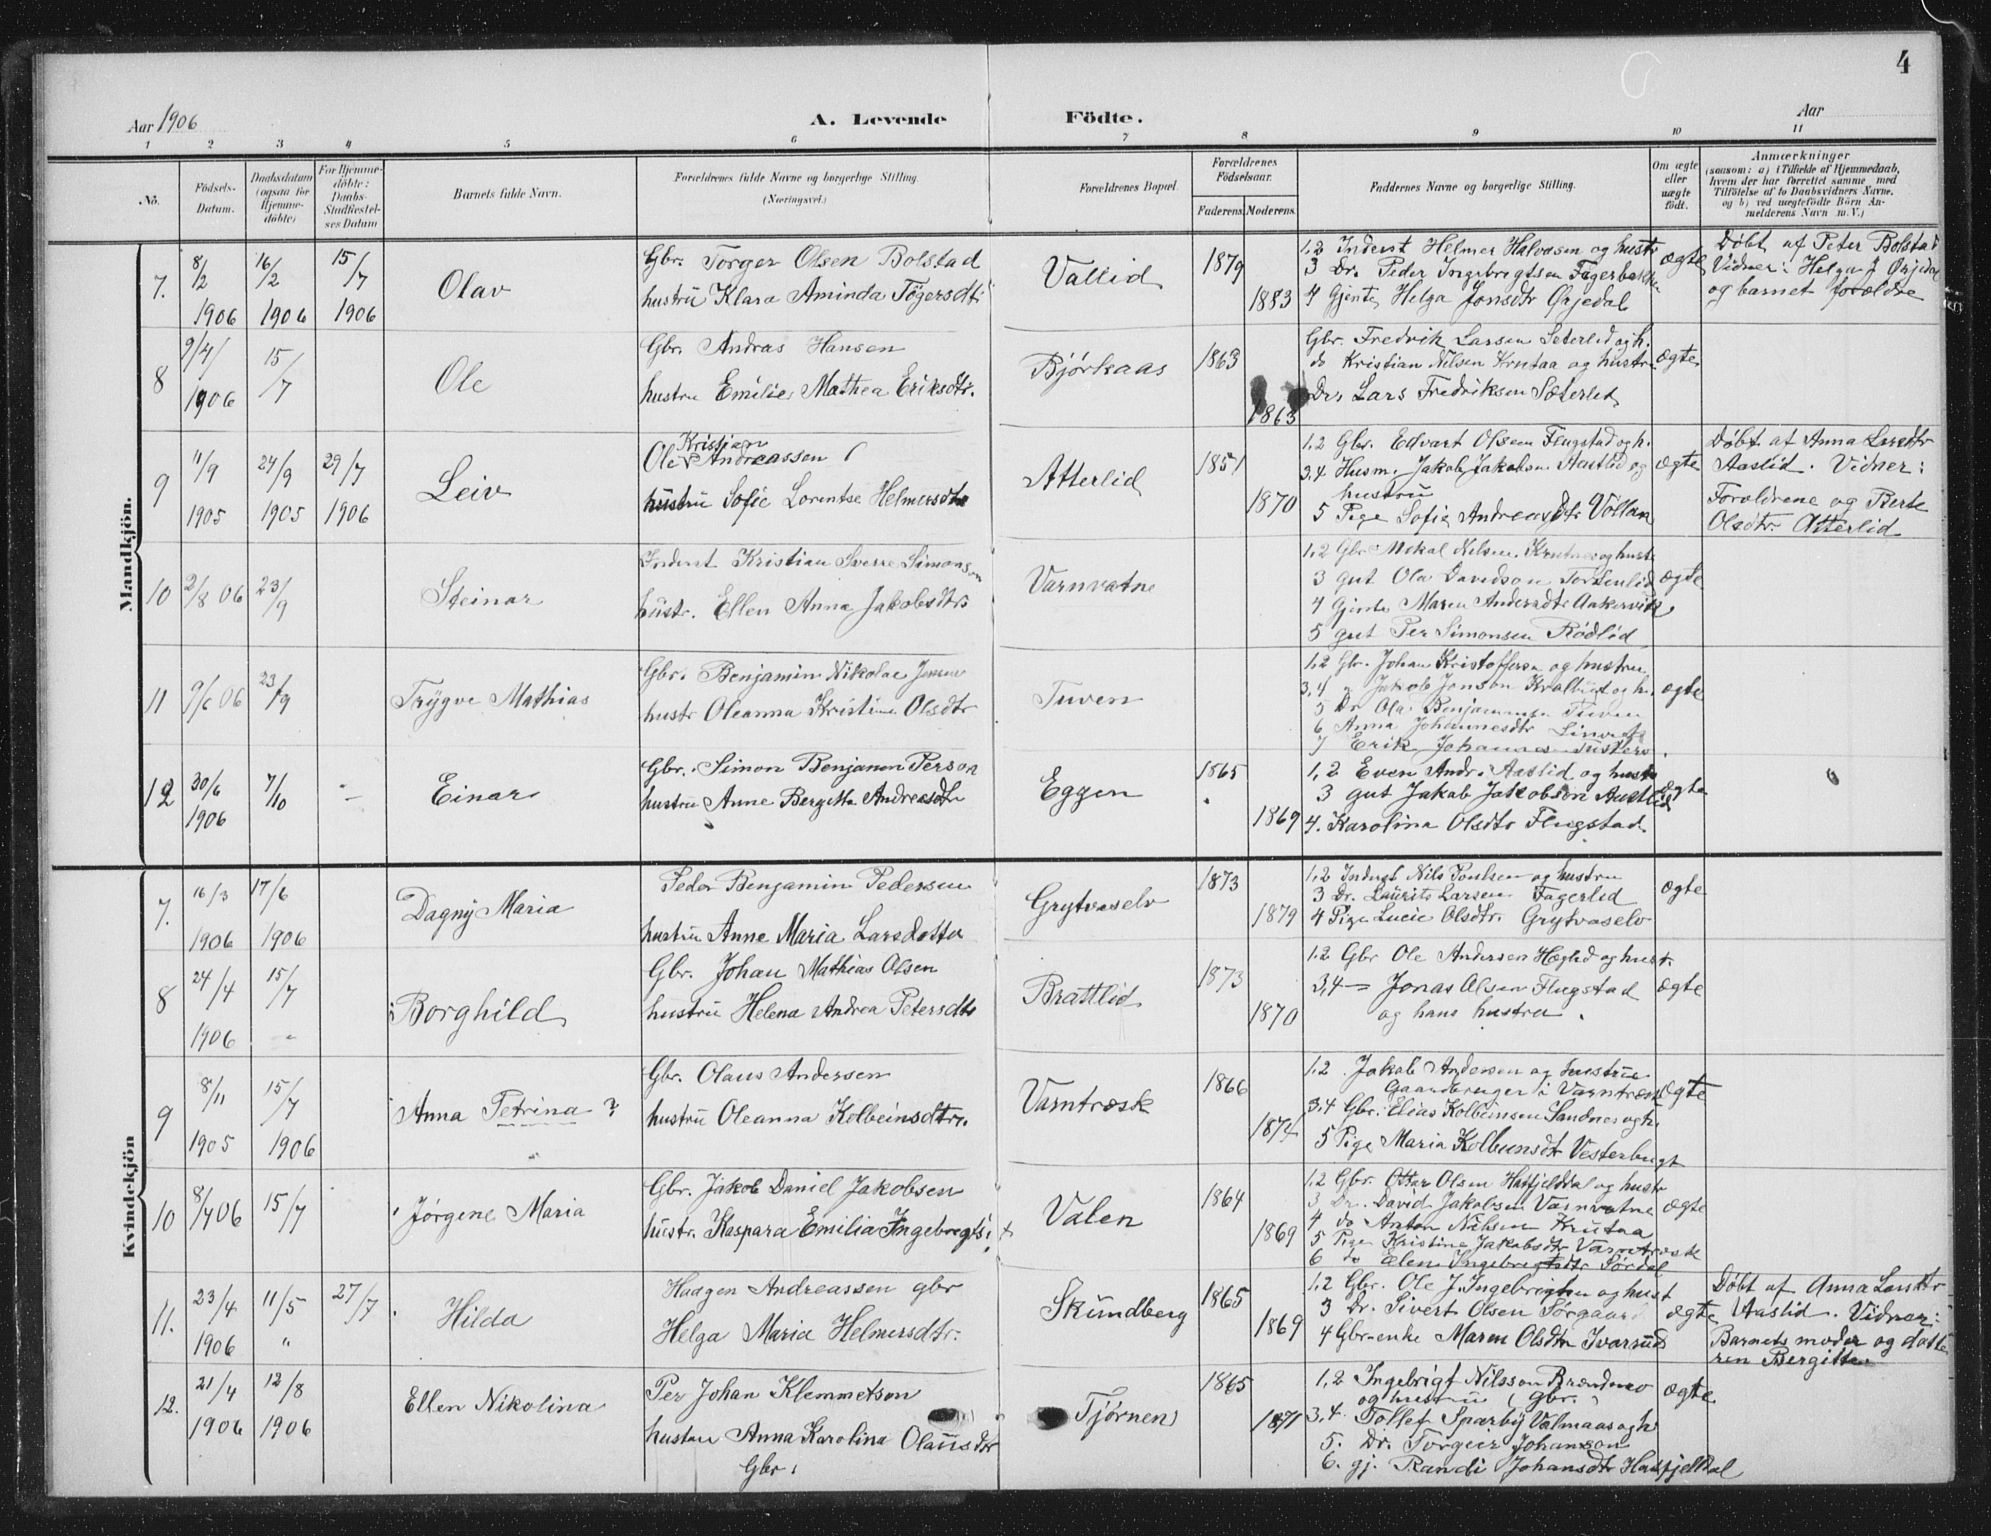 4
Aar 1906
A. Levende Födte.
Aar
1 2 3 4 5 6 7 8 9 10 11
No.
Födsels-Datum.
Daabsdatum (ogsaa for Hjemme-döbte)
For Hjemme-döbte: Daabs-Stadfæstel-ses Datum
Barnets fulde Navn.
Forældrenes fulde Navne og borgerlige Stilling. (Næringsvei.)
Forældrenes Bopæl.
Forældrenes Födselsaar.
Faderens. Moderens.
Faddernes Navne og borgerlige Stilling.
Om ægte eller uægte födt.
Anmærkninger
(saasom: a) i Tilfælde af Hjemmedaab,
hvem der har forrettet samme med
Tilföielse af to Daabsvidners Navne,
og b) ved uægtefödte Börn An-
melderens Navn m. V.)
Mandkjön.
7. 8/2 1906 16/2 1906 15/7 1906
Olav
Gbr. Torger Olsen Bolstad
hustru Klara Aminda Tögersdt
Vallid
1879 1883
1.2 Inderst Helmer Halvosen og hustr
3 Dr. Peder Ingebrigtsen Fagerbakken
4 Gjente Helga Jonsdtr Ørjedal
ægte
Døbt af Peter Bolstad
Vidner: Helga J Ørjedal
og barnet forældre
8 9/4 1906 15/7
Ole
Gbr. Andras Hansen
hustru Emilie Mathea Eriksdtr.
Bjørkaas
1863 1863
Gbr. Fredrik Larsen Seterlid og h.
do Kristian Nilsen Krutaa og hustru
Dr. Lars Fredriksen Sæterlid
ægte
9 11/9 1905 24/9 1905 29/7 1906
Leiv
Ole Kristian Andreassen
hustru Sofie Lorentse Helmersdtr
Atterlid
1851 1870
1.2 Gbr. Edvart Olsen Flugstad og h.
3.4 Husm. Jakob Jakobsen Austlid og
hustru
5 Pige Sofie Andreasdtr Vollan
ægte
Døbt af Anna Larsdtr
Aaslid. Vidner:
Forældrene og Berte
Olsdtr Atterlid
10 2/8 06 23/9
Steinar
Inderst Kristian Sverre Simonsen
hustr. Ellen Anna Jakobsdtr
Varnvatne
1.2 Gbr Mikal Nilsen Krutnes og hustr
3 gut Ola Davidson Tortenlid
4 Gjente Maren Andersdtr Aakervik
5 gut Per Simonsen Rödlid
ægte
11 9/6 06 23/9
Trygve Mathias
Gbr. Benjamin Nikolae Jensen
hustr Oleanna Kristine Olsdtr
Tuven
1.2 Gbr. Johan Kristoffersen og hustru
3.4 " Jakob Jonson Kvalbugt og h.
5 Dr Ola Benjaminsen Tuven
6 Anna Johannesdtr
7 Erik Johannes
ægte
12 30/6 1906 7/10 —
Einar
Gbr. Simon Benjamin Person
hustru Anne Bergitta Andreasdtr
Eggen
1865 1869
1,2 Even Andr. Aaslid og hustr
3 gut Jakob Jakobson Austlid
4. Karolina Olsdtr Flugstad
ægte
Kvindekjön
7. 16/3 1906 17/6 1906
Dagny Maria
Peder Benjamin Pedersen
hustru Anne Maria Larsdotter
Grytvaselv
1873 1879
1.2 Inderst Nils Poulsen og hustru
3 Dr. Laurits Larsen Fagerlid
4 Pige Lucie Olsdtr. Grytvaselv
ægte
8 24/4 1906 15/7 "
Borghild
Gbr. Johan Mathias Olsen
hustru Helena Andrea Petersdtr
Brattlid
1873 1870
1.2 Gbr Ole Andersen Hæglid og hust.
3,4 — Jonas Olsen Flugstad
og hans hustru.
ægte
9 8/11 1905 15/7 1906
Anna Petrina ?
Gbr. Olaus Andersen
hustru Oleanna Kolbeinsdtr.
Varntræsk
1866 1874
1.2 Jakob Andersen og hustru
Gaardbruger i Varntræsk
3.4 Gbr. Elias Kolbeinsen Sandnes og h.
5 Pige Maria Kolbeinsdtr Vesterbugt
ægte
10 8/4 06 15/7
Jørgene Maria
Gbr. Jakob Daniel Jakobsen
hustr. Kaspara Emilia Ingebregts
Valen
1864 1869
1.2 Gbr. Ottar Olsen Hatfjelddal og hustr
3 Dr. David Jakobsen Varnvatne
4 do Anton Nilsen Krutaa
5 Pige Kristine Jakobsdtr Varntræsk
6 do Elen Ingebregtsdtr Sørdal
ægte
11. 23/4 1906 11/5 " 27/7
Hilda
Haagen Andreassen gbr
Helga Maria Helmersdtr.
Skundberg
1865 1869
1.2 Gbr. Ole J. Ingebrigtsen og hust
3 Dr. Sivert Olsen Sørgaard
4 Gbr-enke Maren Olsdtr Ivarrud
ægte
Døbt af Anna Larsdtr
Aaslid. Vidner:
Barnets moder og datte
ren Bergitte
12. 21/4 1906 12/8 1906
Ellen Nikolina
Per Johan Klemmetson
hustru Anna Karolina Olausdtr
Gbr.
Tjørnen
1865 1871
1,2 Ingebrigt Nilsson Brændmo
og hustru (Gbr.)
3,4. Tollef Sparby Valmaas og h
5. Dr. Torgeir Johanson
6. gj. Randi Johansdtr Hatfjelldal
ægte